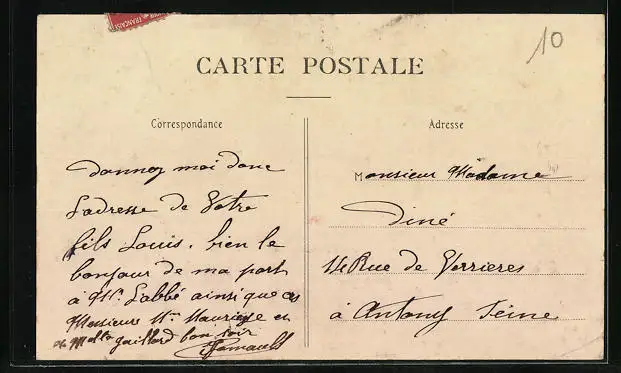 10
CARTE POSTALE
Correspondance
donnez moi donc
l'adresse de Votre
fils Louis. bien le
bonjour de ma part
à Mr. L'abbé ainsi que
Messieur Mr. et
Gaillard bon soir
Adresse
Monsieur Madame
Diné
14 Rue de Verrieres
à Antony Seine